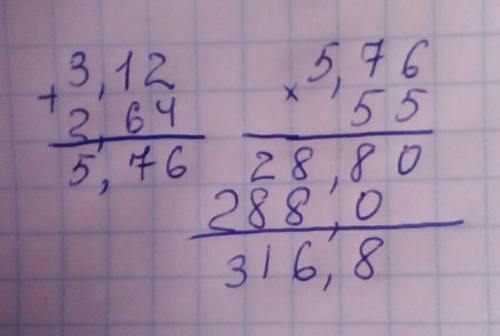 3,12
+
2,64
5,76
5,76
×
55
28,80
288,0
316,8